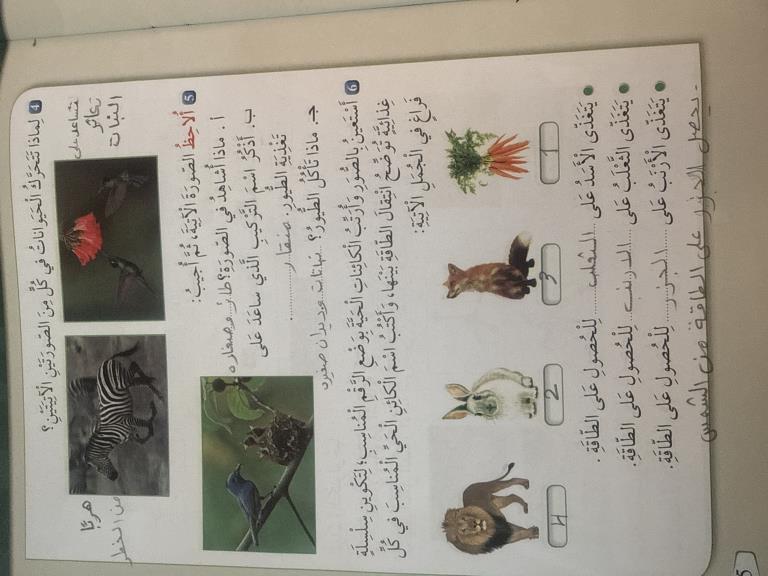 4 لِماذا تَتَحَرَّكُ الْحَيَواناتُ في كُلٍّ مِنَ الصّورَتَيْنِ الْآتِيَتَيْنِ؟
تساعد على
تكاثر
النباتات
هربًا
من الخطر
5 أُلاحِظُ الصّورَةَ الْآتِيَةَ، ثُمَّ أُجيبُ:
أ . ماذا أُشاهِدُ في الصّورَةِ؟ طائر وصغاره
ب. أَذْكُرُ اسْمَ التَّرْكيبِ الَّذي ساعَدَ عَلى
تَغْذِيَةِ الطُّيورِ. منقار
جـ. ماذا تَأْكُلُ الطُّيورُ؟ نباتات وديدان صغيره
6 أَسْتَعينُ بِالصُّوَرِ وَأُرَتِّبُ الْكائِناتِ الْحَيَّةَ بِوَضْعِ الرَّقْمِ الْمُناسِبِ؛ لِتَكْوينِ سِلْسِلَةٍ
غِذائِيَّةٍ تُوَضِّحُ انْتِقالَ الطّاقَةِ بَيْنَها، وَأَكْتُبُ اسْمَ الْكائِنِ الْحَيِّ الْمُناسِبَ في كُلِّ
فَراغٍ في الْجُمَلِ الْآتِيَةِ:
1 3 2 4
يَتَغَذّى الْأَسَدُ عَلى الثعلب لِلْحُصولِ عَلى الطّاقَةِ.
يَتَغَذّى الثَّعْلَبُ عَلى الارنب لِلْحُصولِ عَلى الطّاقَةِ.
يَتَغَذّى الْأَرْنَبُ عَلى الجزر لِلْحُصولِ عَلى الطّاقَةِ.
يحصل الجزر على الطاقة من الشمس